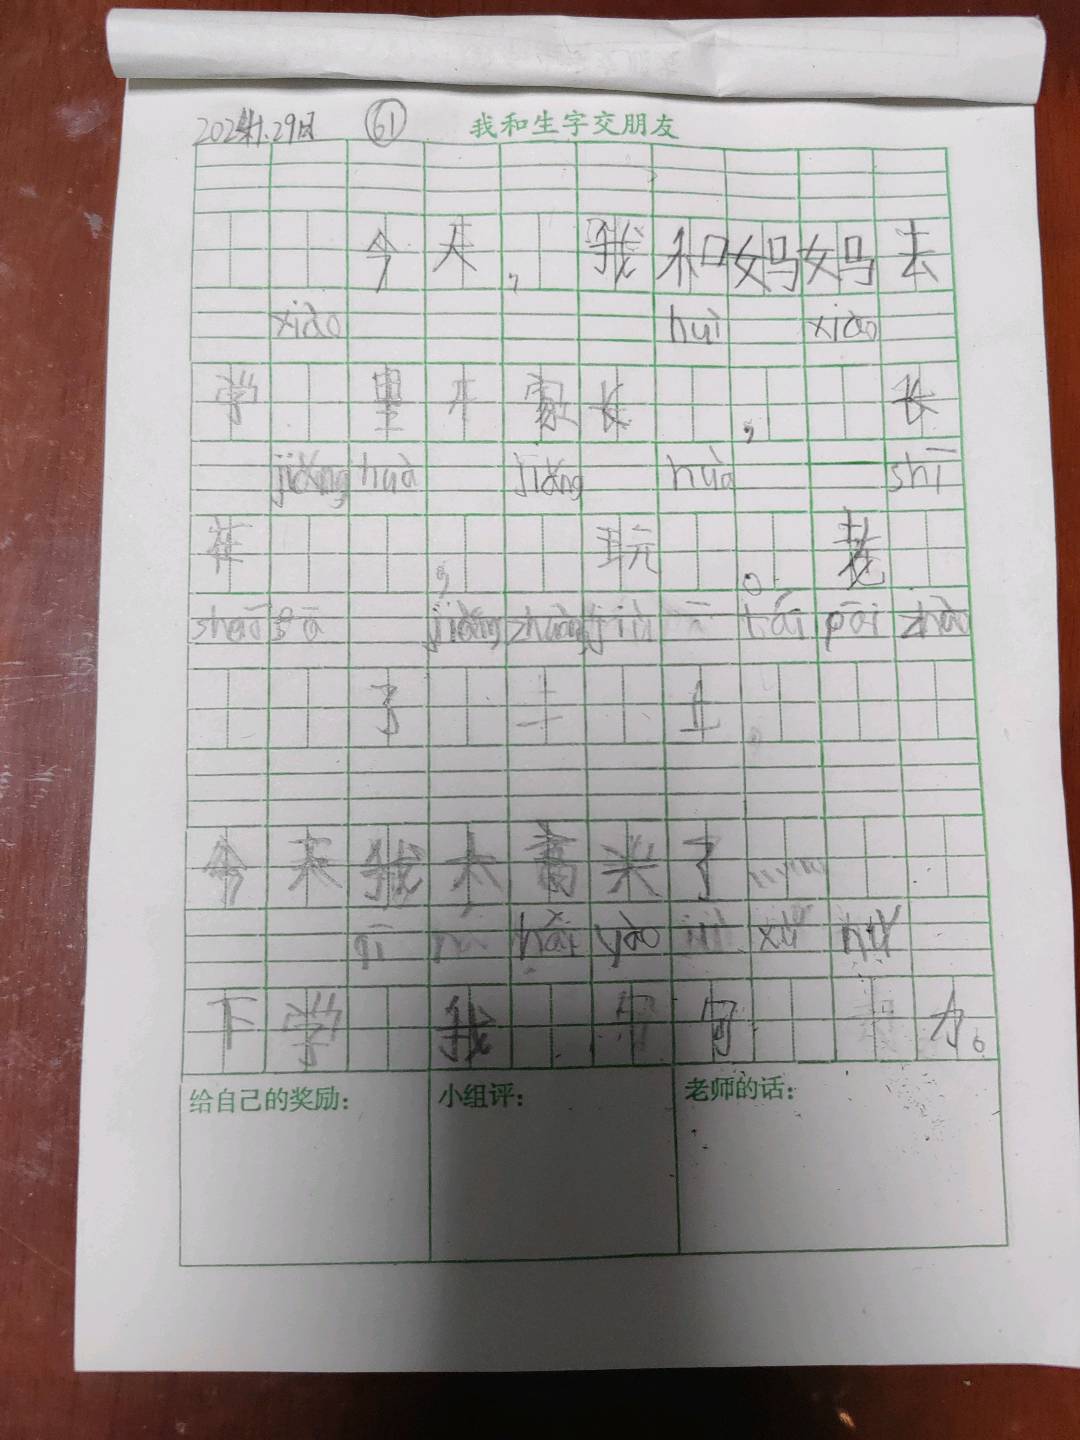 我和生字交朋友
61
今天,我和妈妈去
xiào huì xiào
学 里开家长 , 长
jiǎng huà jiǎng huà shī
在 , 玩 。老
jiǎng zhuàng tái pāi zhào
了 上
今天我太高兴了……
hái yào xù nǔ
下学 我
给自己的奖励:
小组评:
老师的话: